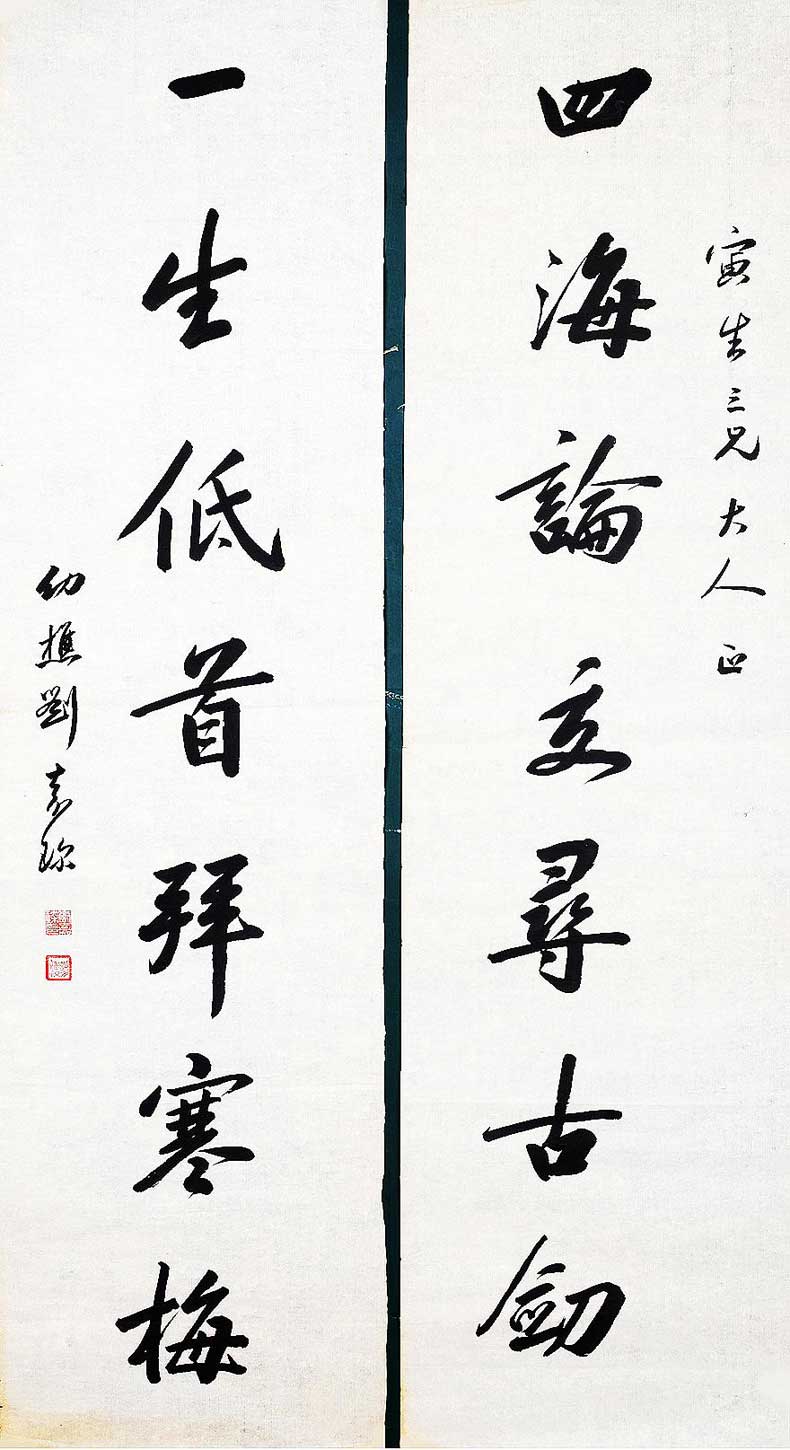 寅生三兄大人正
四海論交尋古劒
一生低首拜寒梅
幼樵劉嘉琛